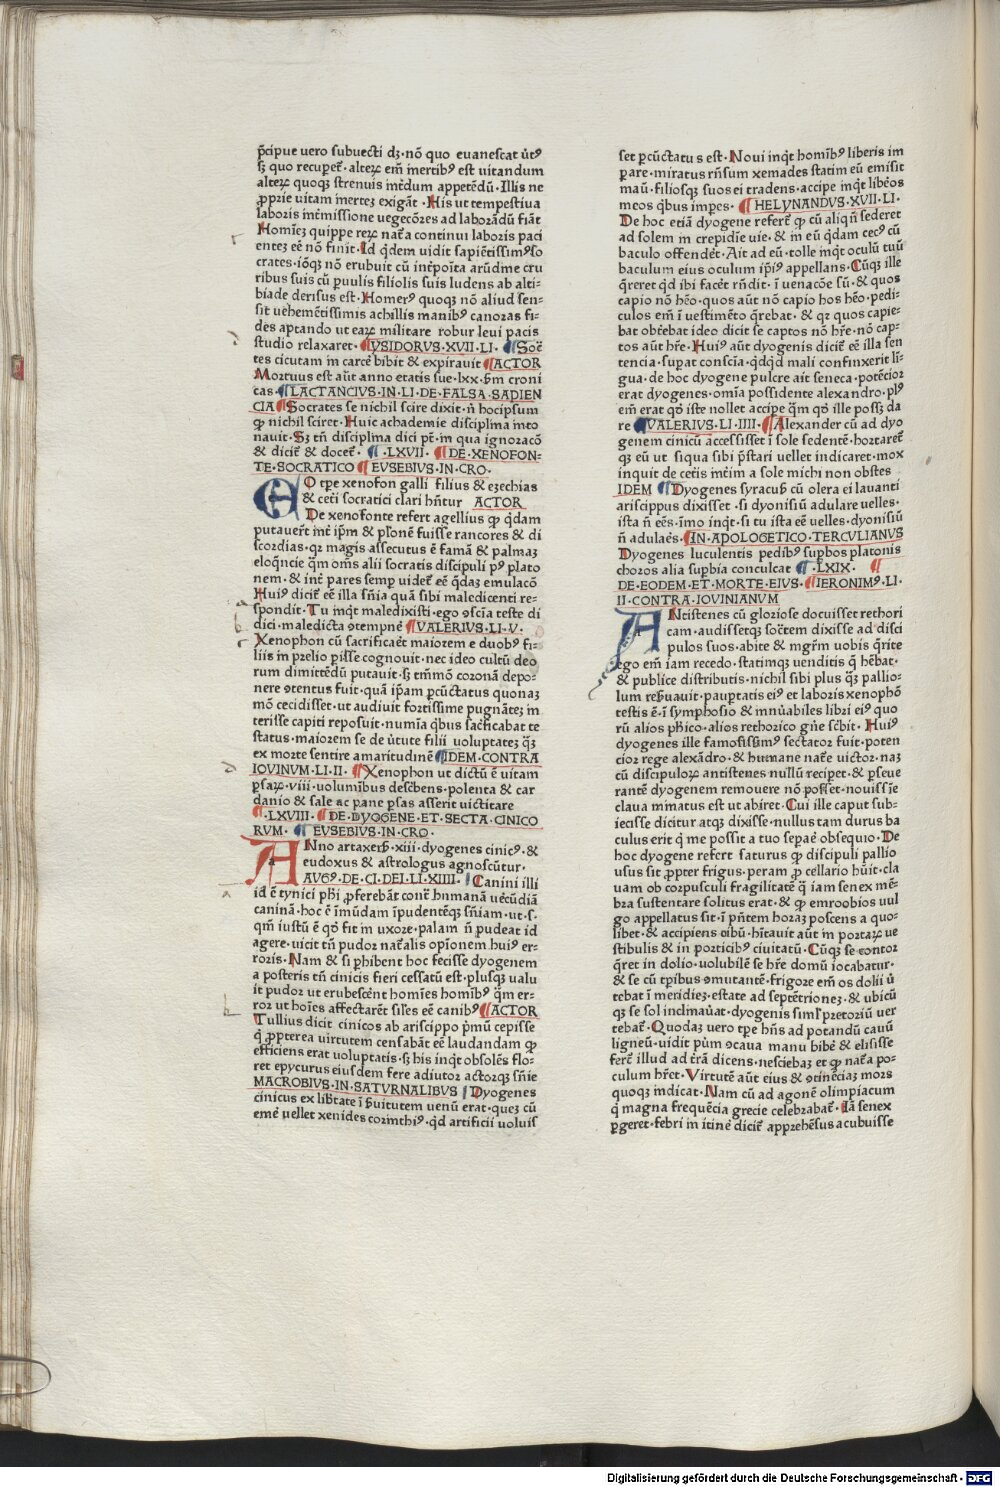 p̄cipue uero subuecti dꝫ·nō quo euanescat ůtꝰ
sꝫ quo recuperet̄·alteꝝ em̄ inertibꝰ est uitandum
alteꝝ quoqꝫ strenuis int̄dum appetēdū·Illis ne
ꝓprie uitam inertēꝫ exigāt·His ut tempestiua
laboris int̄missione uegeciores ad laborādū fiāt
Homīeꝫ quippe reꝝ nat̄a continui laboris paci
enteꝫ eē nō finit·Id q̄dem uidit sapiētissimꝰ so
crates·iōqꝫ nō erubuit cū int̄posita arūdine cru
ribus suis cū puulis filiolis suis ludens ab alti-
biade derisus est·Homerꝰ quoqꝫ nō aliud sen-
sit uehemētissimis achillis manibꝰ canoras fi-
des aptando ut eaꝝ militare robur leui pacis
studio relaxaret·YSIDORVS·XVII·LI·Soc̄
tes cicutam in carcē bibit & expirauit ACTOR
Mortuus est aūt anno etatis sue·lxx·ẜm croni
cas·LACTANCIVS·IN·LI·DE·FALSA·SAPIEN
CIA Socrates se nichil scire dixit·n̄ hocipsum
ꝙ nichil sciret·Huic achademie disciplina inno
nauit·Sꝫ tn̄ disciplina dici pt̄·in qua ignoracō
& dicit̄ & docet̄·LXVII·DE·XENOFON-
TE·SOCRATICO EVSEBIVS·IN·CRO·
EO tꝑe xenofon galli filius & ezechias
& cet̄i socratici clari hn̄tur ACTOR
De xenofonte refert agellius ꝙ q̄dam
putauer̄t int̄ ip̄m & pl'onē fuisse rancores & di
scordias·qꝛ magis assecutus ē famā & palmaꝫ
eloq̄ncie q̄m om̄s alii socratis discipuli pꝰ plato
nem·& int̄ pares semꝑ uidet̄ eē q̄daꝫ emulacō
Huiꝰ dicit̄ eē illa sn̄ia quā sibi maledicenti re-
spondit·Tu inq̇t maledixisti·ego ꝯscīa teste di
dici·maledicta ꝯtempnē VALERIVS·LI·V·
Xenophon cū sacrificaēt maiorem e duobꝰ fi-
liis in prelio piisse cognouit·nec ideo cultū deo
rum dimittēdū putauit·sꝫ tm̄mō coronā depo-
nere ꝯtentus fuit·quā ip̄am ꝑcūctatus quonaꝫ
mō cecidisset·ut audiuit fortissime pugnāteꝫ in
terisse capiti reposuit·numīa q̇bus sac̄ficabat te
status·maiorem se de ůtute filii uoluptateꝫ q̄ꝫ
ex morte sentire amaritudinē IDEM·CONTRA
IOVINVM·LI·II·Xenophon ut dictū ē uitam
ꝑsaꝝ·viii·uolumībus desc̄bens·polenta & car
danio & sale ac pane ꝑsas asserit uictitare
·LXVIII·DE·DYOGENE·ET·SECTA·CINICO
RVM·EVSEBIVS·IN·CRO·
ANno artaxerẜ·xiii·dyogenes cinicꝰ·&
eudoxus & astrologus agnoscūtur·
AVGꝰ·DE·CI·DEI·LI·XIIII·Canini illi
id ē cynici ph̄i ꝓferebāt cont̄ humanā uēcūdiā
caninā·hoc ē īmūdam īpudentēqꝫ sn̄iam·ut·s·
qm̄ iustū ē qō fit in uxore·palam n̄ pudeat id
agere·uicit tn̄ pudor nat̄alis opīonem huiꝰ er-
roris·Nam & si ꝑhibent hoc fecisse dyogenem
a posteris tn̄ cinicis fieri cessatū est·plusqꝫ ualu
it pudor ut erubescēnt homīes homībꝰ q̄m er-
ror ut hoīes affectarēt sil'es eē canibꝰ ACTOR
Tullius dicit cinicos ab ariscippo p̄mū cepisse
q̄ ꝓpterea uirtutem censabāt eē laudandam ꝙ
efficiens erat uoluptatis·sꝫ his inq̇t obsolēs flo-
ret epycurus eiusdem fere adiutor actorqꝫ sn̄ie
MACROBIVS·IN·SATVRNALIBVS Dyogenes
cinicus ex lib̄tate ī ẜuitutem uenū erat·queꝫ cū
emē uellet xenides corinthiꝰ·q̇d artificii nouis
set ꝑcūctatus est·Noui inq̇t homībꝰ liberis im
ꝑare·miratus rn̄sum xemades statim eū emisit
manū·filiosqꝫ suos ei tradens·accipe inq̇t lib̄os
meos q̇bus imꝑes·HELYNANDVS·XVII·LI·
De hoc etiā dyogene refert̄ ꝙ cū aliqn̄ sederet
ad solem in crepidīe uie·& in eū q̇dam cecꝰ cū
baculo offendēt·Ait ad eū·tolle inq̇t oculū tuū
baculum eius oculum ip̄iꝰ appellans·Cūqꝫ ille
q̄reret q̇d ibi facēt rn̄dit·ī uenacōe sū·& quos
capio nō hēo·quos aūt nō capio hos hēo·pedi-
culos em̄ ī uestimēto q̄rebat·& qꝛ quos capie-
bat obcēbat ideo dicit se captos nō hr̄e·nō cap-
tos aūt hr̄e·Huiꝰ aūt dyogenis dicit̄ eē illa sen
tencia·suꝑat conscīa·q̇dq̇d mali confinxerit lī-
gua·de hoc dyogene pulcre ait seneca·potēcior
erat dyogenes·omīa possidente alexandro·plꝰ
em̄ erat qō iste nollet accipe q̄m qō ille possꝫ da
re VALERIVS·LI·IIII·Alexander cū ad dyo
genem cinicū accessisset ī sole sedentē·hortaret̄
qꝫ eū ut siqua sibi p̄stari uellet indicaret·mox
inquit de cet̄is int̄im a sole michi non obstes
IDEM Dyogenes syracuẜ cū olera ei lauanti
ariscippus dixisset·si dyonisiū adulare uelles·
ista n̄ eēs·īmo inq̇t·si tu ista eē uelles·dyonisiū
n̄ adulaēs·IN·APOLOGETICO·TERCVLIANVS
Dyogenes luculentis pedibꝰ suꝑbos platonis
choros alia suꝑbia conculcat ·LXIX·
DE·EODEM·ET·MORTE·EIVS·IERONIMꝰ·LI·
II·CONTRA·IOVINIANVM
ANtistenes cū gloriose docuisset rethori
cam·audissetqꝫ soc̄tem dixisse ad disci
pulos suos·abite & mgr̄m uobis q̄rite
ego em̄ iam recedo·statimqꝫ uenditis q̄ hēbat·
& publice distributis·nichil sibi plus q̄ꝫ pallio-
lum reẜuauit·pauꝑtatis eiꝰ et laboris xenophō
testis ē·ī symphosio & innūabiles libri eiꝰ quo
rū alios ph̄ico·alios rethorico gn̄e sc̄bit·Huiꝰ
dyogenes ille famosissimꝰ sectator fuit·poten
cior rege alexādro·& humane nat̄e uictor·naꝫ
cū discipuloꝝ antistenes nullū reciꝑet·& ꝑseue
rantē dyogenem remouere nō posset·nouissīe
claua minatus est ut abiret·Cui ille caput sub-
iecisse dicitur atqꝫ dixisse·nullus tam durus ba
culus erit q̄ me possit a tuo seꝑaē obsequio·De
hoc dyogene refert saturus ꝙ discipuli pallio
usus sit ꝓpter frigus·peram ꝓ cellario hūit·cla
uam ob corpusculi fragilitatē q̄ iam senex mē-
bra sustentare solitus erat·& ꝙ emroobios uul
go appellatus sit·ī pn̄tem horaꝫ poscens a quo-
libet·& accipiens cibū·hītauit aūt in portaꝝ ue
stibulis & in porticibꝰ ciuitatū·Cūqꝫ se contor
q̄ret in dolio·uolubilē se hr̄e domū iocabatur·
& se cū tꝑibus ꝯmutantē·frigore em̄ os dolii ů
tebat ī meridieꝫ·estate ad septētrioneꝫ·& ubicū
qꝫ se sol inclinauat·dyogenis siml' pretoriū uer
tebat̄·Quodaꝫ uero tꝑe hn̄s ad potandū cauū
ligneū·uidit pūm ꝯcaua manu bibē & elisisse
fert̄ illud ad t̄rā dicens·nesciebaꝫ et ꝙ nat̄a po-
culum hr̄et·Virtutē aūt eius & ꝯtinēciaꝫ mors
quoqꝫ indicat·Nam cū ad agonē olimpiacum
q̄ magna frequēcia grecie celebrabat̄·Iā senex
ꝑgeret·febri in itinē dicit̄ appręhēsus acubuisse
Digitalisierung gefördert durch die Deutsche Forschungsgemeinschaft - DFG